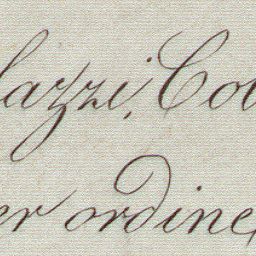 lazzi, Col
er ordine,